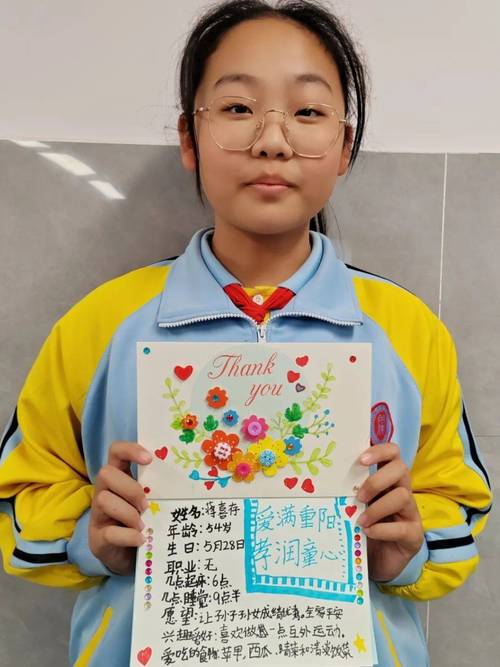 Thank
you
姓名:蒋喜存
年龄:54岁
生日:5月28日
职业:无
几点起床:6点
几点睡觉:9点半
愿望:让孙子孙女成绩优秀。全家平安
兴趣爱好:喜欢做一点户外运动,
爱吃的食物:西瓜、和清淡饭菜
爱满重阳
孝润童心